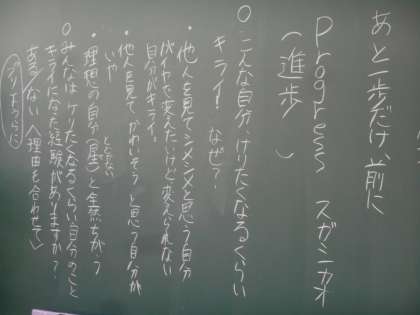 あと一歩だけ、前に
Progress スガシカオ
（進歩）
○こんな自分、けりたくなるくらい
キライ！ なぜ？
・他人を見てジメジメと思う自分
がイヤで変えたいけど変えられない
自分がキライ。
・他人を見て、かわいそうと思う自分が
いや
・理想の自分（星）と全然ちがう
とどかない
○みんなは、ケリたくなるくらい自分のこと
キライになった経験がありますか？
ある／ない 〈理由を合わせて〉